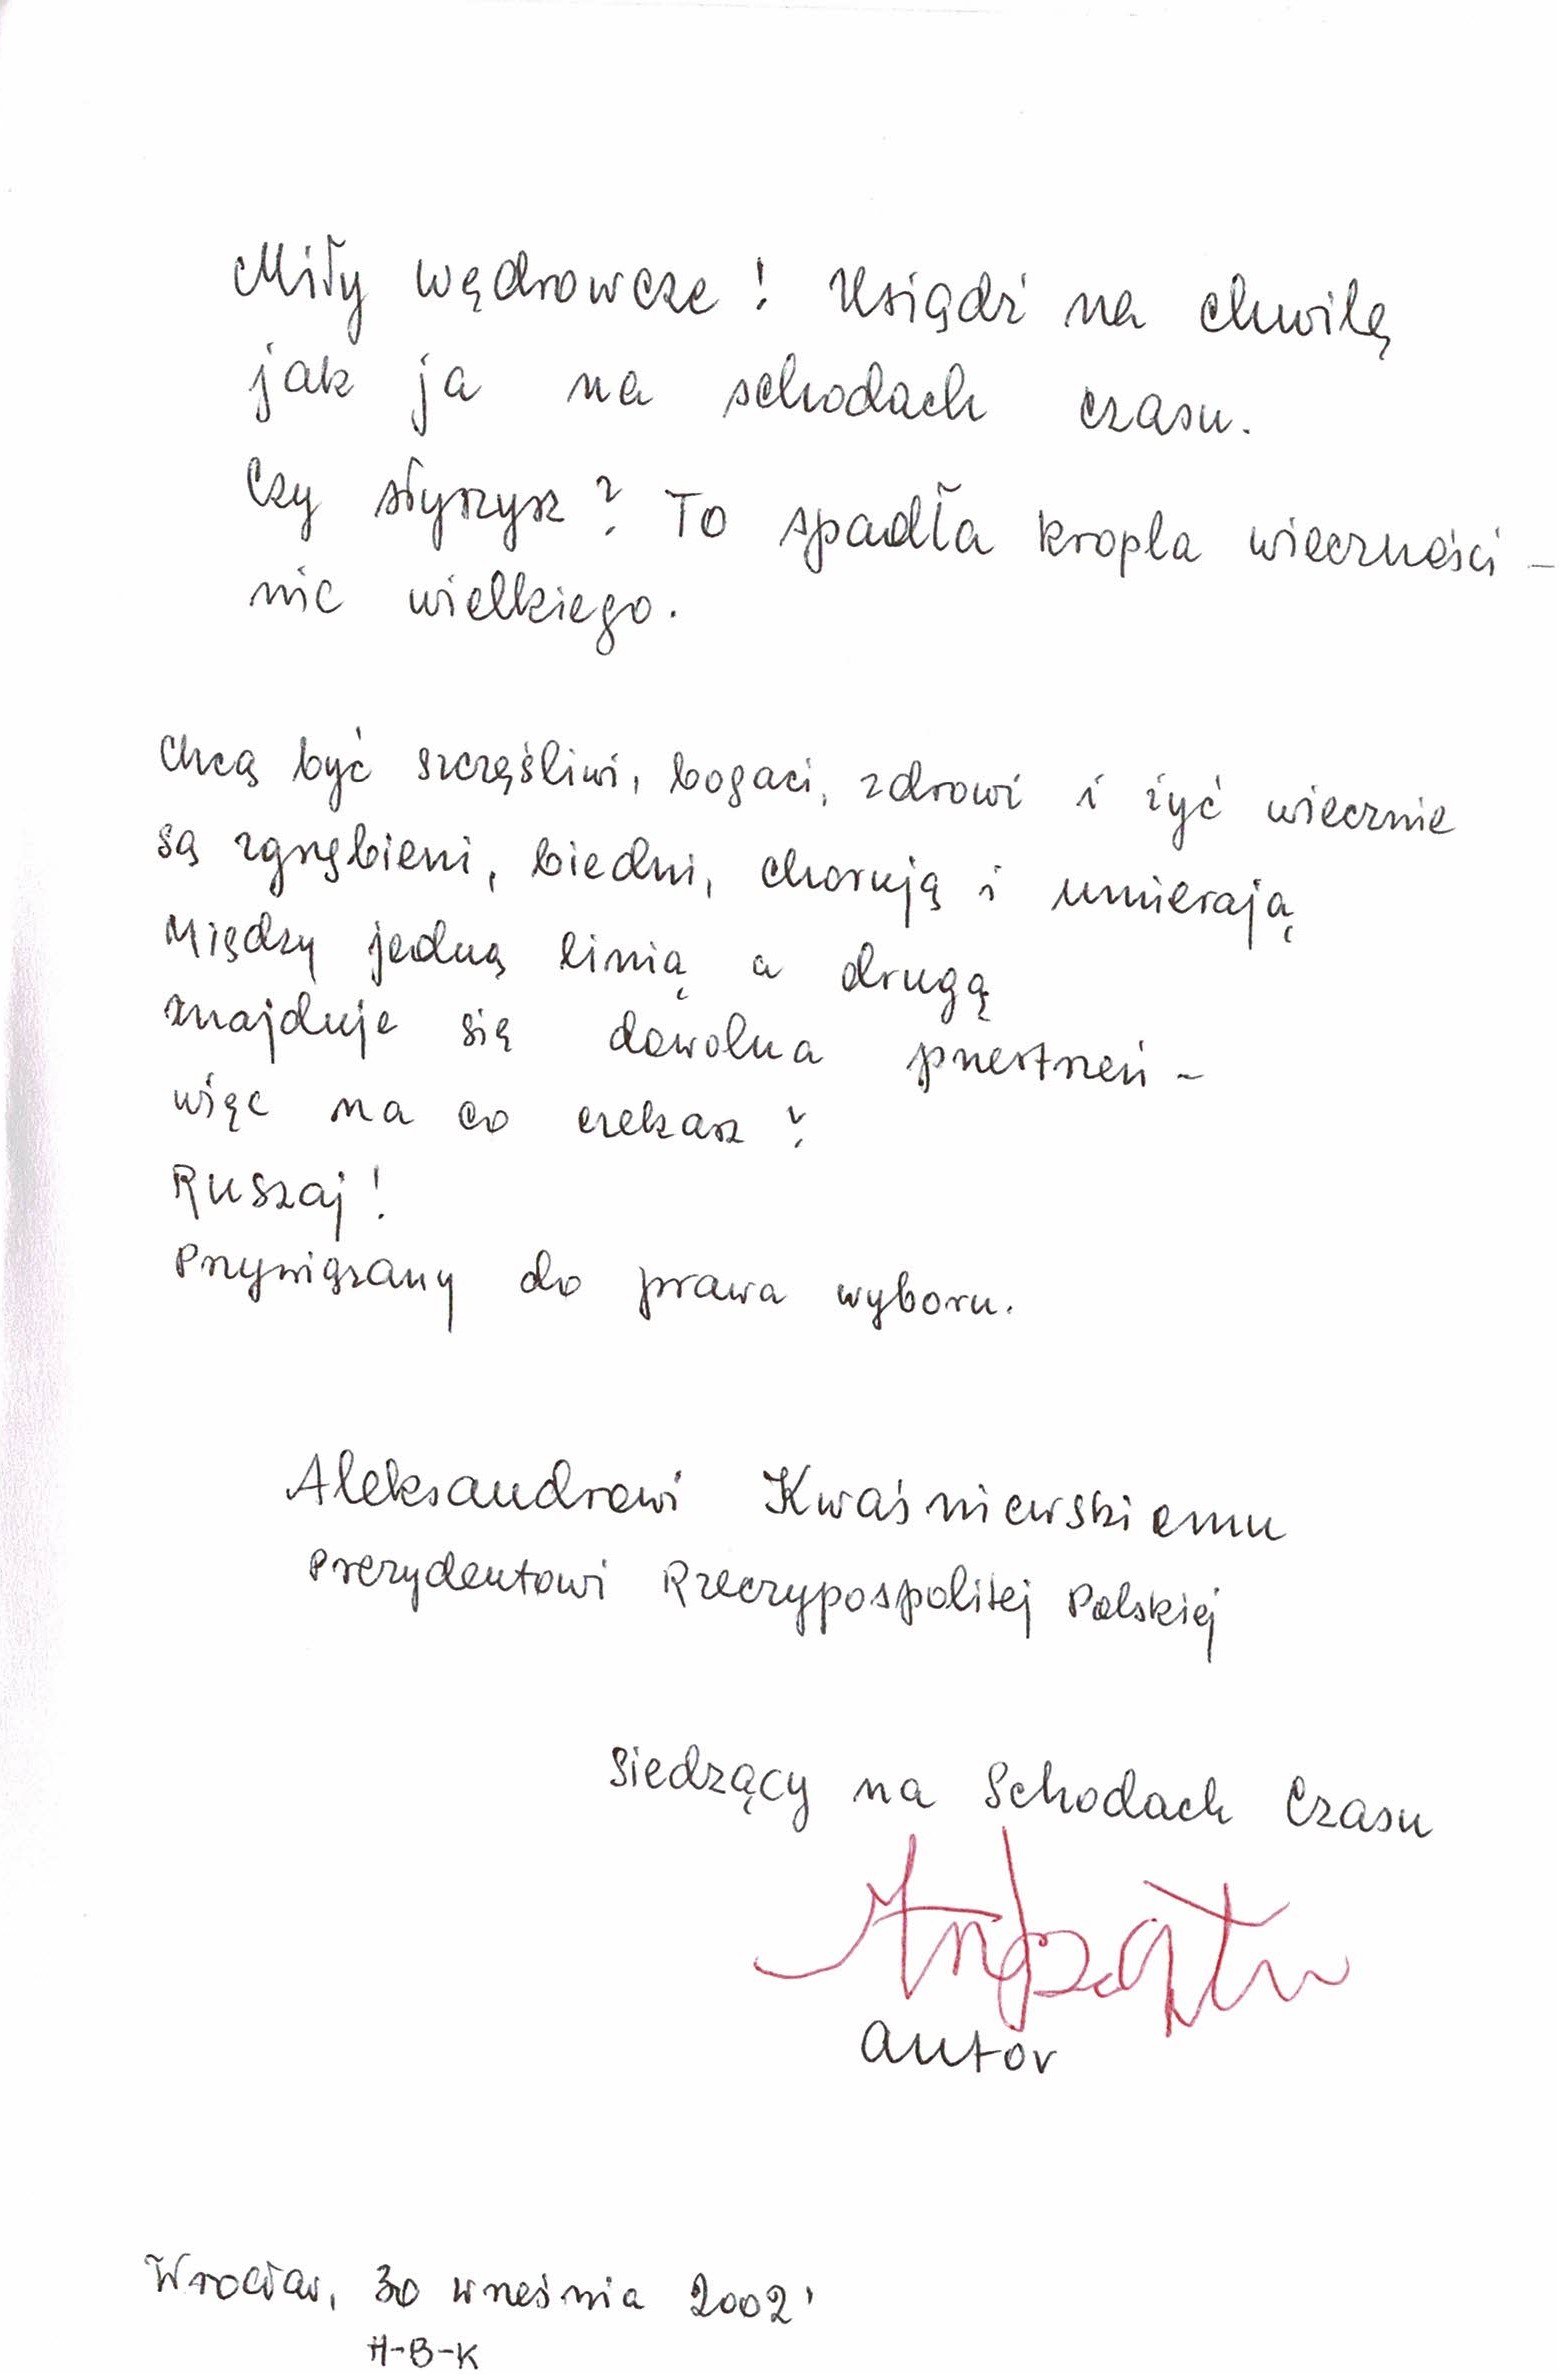 Miły wędrowcze! Usiądź na chwilę
jak ja na schodach czasu.
Czy słyszysz? To spadła kropla wieczności –
nic wielkiego.
Chcą być szczęśliwi, bogaci, zdrowi i żyć wiecznie
są zgnębieni, biedni, chorują i umierają
Między jedną linią a drugą
znajduje się dowolna przestrzeń –
więc na co czekasz?
Ruszaj!
Przywiązany do prawa wyboru.
Aleksandrowi Kwaśniewskiemu
Prezydentowi Rzeczypospolitej Polskiej
Siedzący na Schodach Czasu
autor
Wrocław, 30 września 2002'
H-B-K